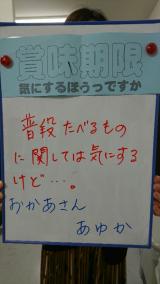 賞味期限
気にするほうっですか
普段たべるもの
に関しては気にする
けど…。
おかあさん
あゆか